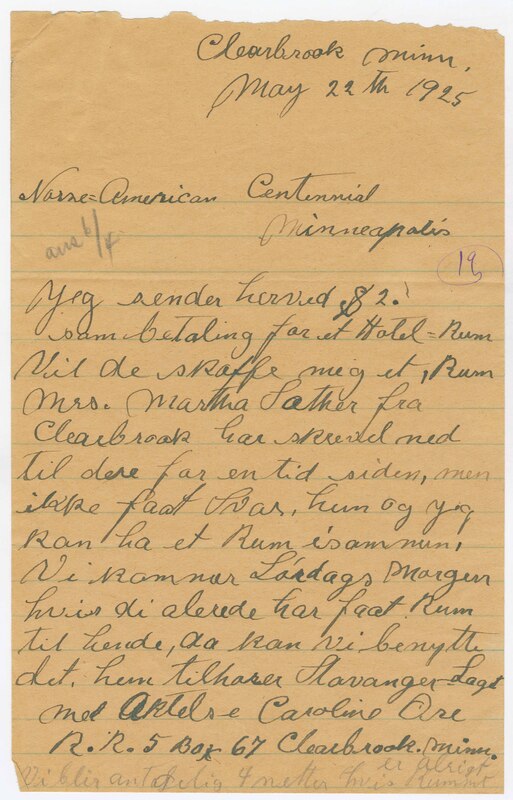 Clearbrook Minn.
May 22th 1925
Norse=American Centennial
Minneapolis
ans 6/4
19
Yeg sender herved $2.
som betaling for et Hotel=Rum
Vil de skaffe meg et, Rum
Mrs. Martha Sather fra
Clearbrook har skrevel ned
til dere for en tid siden, men
ikke faat Svar, hun og yeg
kan ha et Rum isammen,
Vi kommer Lördags Morgen
hvis di alerede har faat Rum
til hende, da kan vi benytte
det. hun tilhorer Stavanger=Lagt
med Aktelse Caroline
R.R. 5 Box 67 Clearbrook. Minn.
er alrigt
Vi blir antagelig 4 netter hvis Rummet